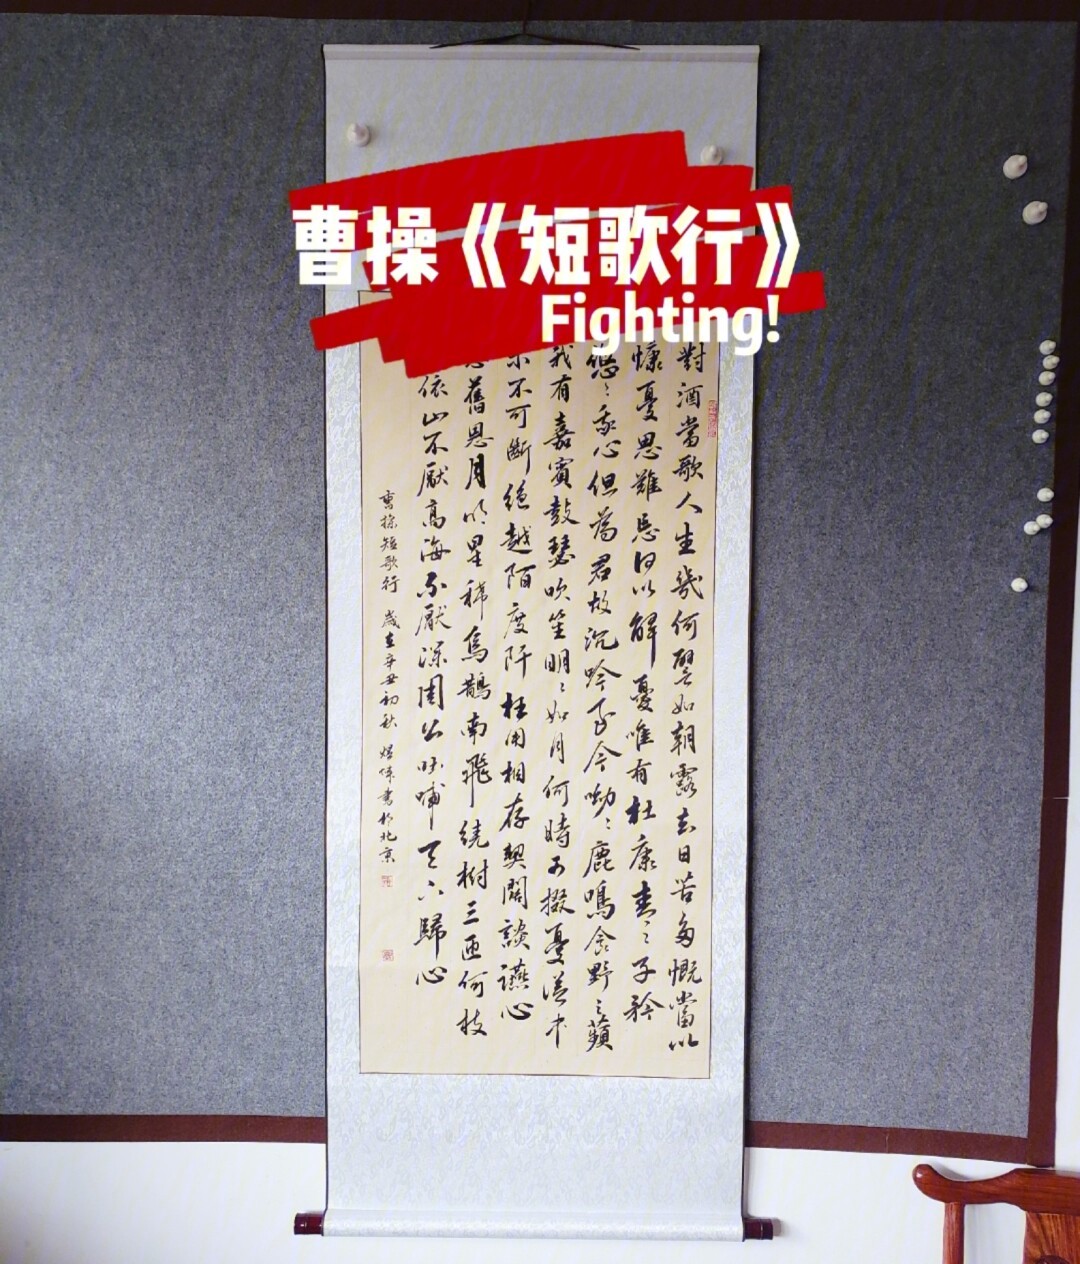 曹操《短歌行》
Fighting!
對酒當歌人生幾何譬如朝露去日苦多慨當以
慷憂思難忘何以解憂唯有杜康青〻子衿
悠〻我心但為君故沉吟至今呦〻鹿鳴食野之蘋
我有嘉賓鼓瑟吹笙明〻如月何時可掇憂從中
來不可斷絕越陌度阡枉用相存契闊談讌心
舊恩月明星稀烏鵲南飛繞樹三匝何枝
依山不厭高海不厭深周公吐哺天下歸心
曹操短歌行 歲在辛丑初秋 書於北京